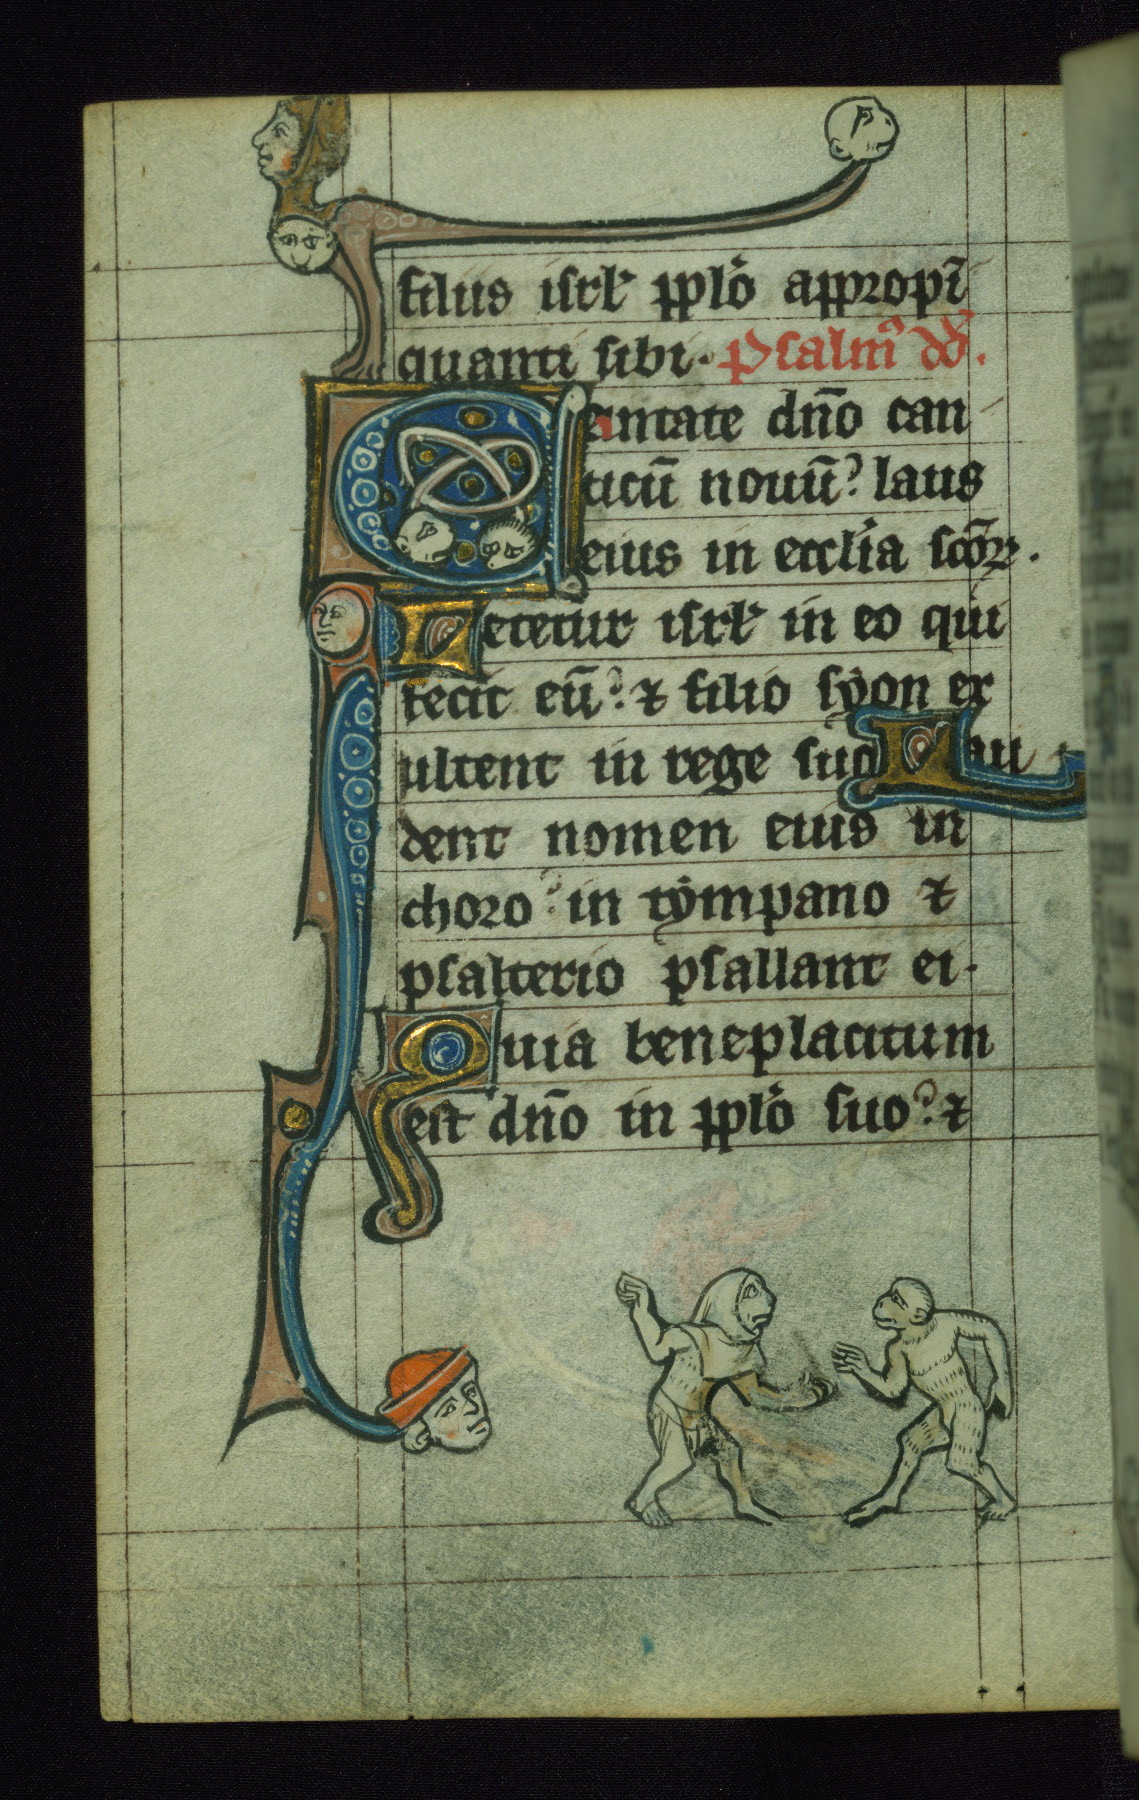 filiis isrl̕ pplo̕ appropĩ
quanti sibi. Psalm᷒ dd̕.
Cantate dño can
ticũ nouũ? laus
eius in eccl̕ia scõꝝ.
Letetur isrl̕ in eo qui
fecit eũ? ⁊ filie syon ex
ultent in rege suo Lau
dent nomen eius in
choro? in tympano ⁊
psalterio psallant ei.
Quia beneplacitum
est dño in pplo̕ suo? ⁊